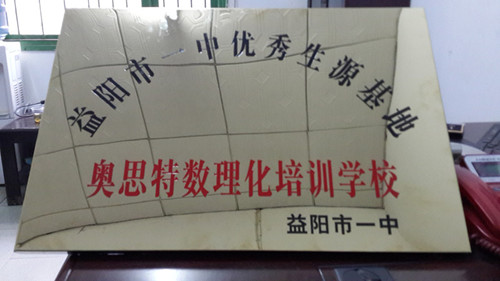 益阳市一中优秀生源基地
奥思特数理化培训学校
益阳市一中